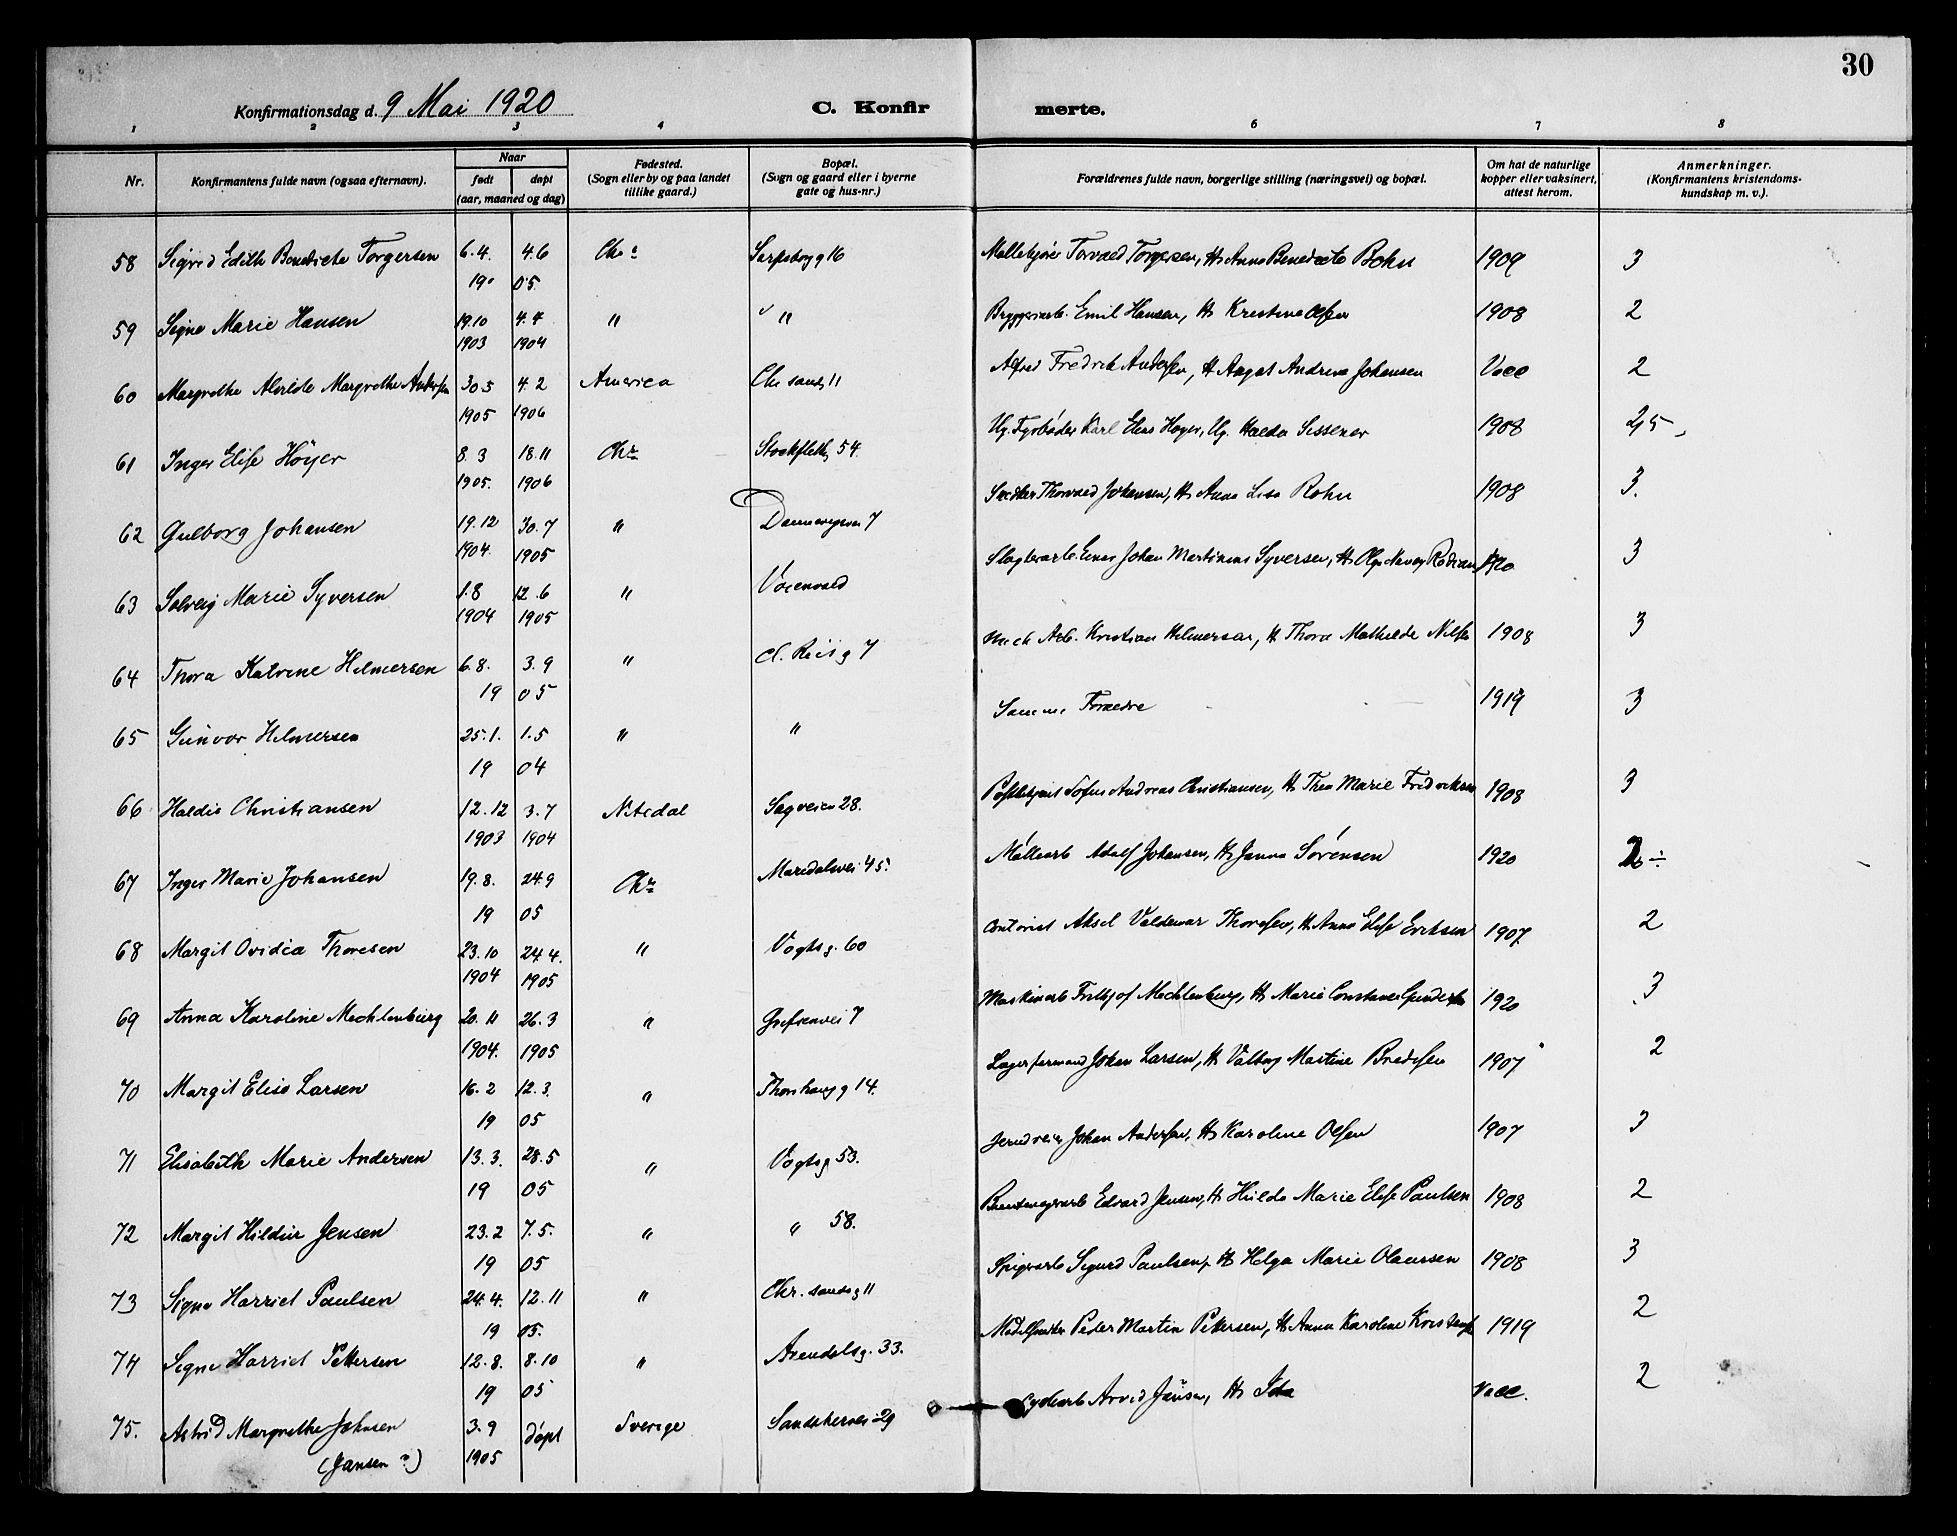 30
Konfirmationsdag d. 9 Mai 1920 C. Konfirmerte.
1 2 3 4 6 7 8
Nr. Konfirmantens fulde navn (ogsaa efternavn). Naar født døpt (aar, maaned og dag) Fødested. (Sogn eller by og paa landet tillike gaard.) Bopæl. (Sogn og gaard eller i byerne gate og hus-nr.) Forældrenes fulde navn, borgerlige stilling (næringsvei) og bopæl. Om hat de naturlige kopper eller vaksinert, attest herom. Anmerkninger. (Konfirmantens kristendomskundskap m. v.).
58 Sigrid Edith Benedicte Torgersen 6.4. 4.6 Chr. Sarpsborgg 16 Møllekjører Torvald Torgersen, H. Anna Benedicte Bohn 1909 3
19 05
59 Signe Marie Hansen 19.10 4.4 " " Bryggeriarb. Emil Hansen, H. Kristine Olsen 1908 2
1903 1904
60 Margrethe Alvilde Margrethe Andersen 30.5 4.2 America Chr sandsg 11 Alfred Fredrik Andersen, H. Aagot Andrea Johansen Vacc 2
1905 1906
61 Inger Elise Höyer 8.3 18.11 Chr. Stockflethg 54. Ug. Fyrbøder Karl Høyer, Ug. Halda Sissener 1908 2,5
1905. 1906
62 Gulborg Johansen 19.12 30.7 " Dannevigsvei 7 Thorvald Johansen, H. Anna Lisa Rohn 1908 3.
1904. 1905
63 Solveig Marie Syversen 1.8 12.6 " Voienvold Slagterarb. Einar Johan Martinius Syversen, H. Olga 3
1904 1905
64 Thora Katrine Hilmersen 6.8. 3.9 " Cl. Riisg 7 Mek Arb. Kristian Hilmersen, H. Thora Mathilde Nilsen 1908 3
19 05
65 Gunvor Hilmersen 25.1. 1.5 " " Samme Forældre 1919 3
19 04
66 Haldis Christiansen 12.12 3.7 Nitedal Sagveien 28. Sofus Andreas Christiansen, H. Thea Marie Fredriksen 1908 3
1903 1904
67 Inger Marie Johansen 19.8. 24.9 Chr. Maridalsvei 45. Møllearb Adolf Johansen, H. Janna Sörensen 1920 2 ÷
19 05
68 Margit Ovidia Thoresen 23.10 24.4. " Vogtsg. 60 Contorist Aksel Valdemar Thoresen, H. Anna Elise Eriksen 1907 2
1904 1905
69 Anna Karoline Mechlenburg 20.11 26.3 " Grefsenvei 7 Maskinarb Fritjof Mechlenburg, H. Marie Constance Gundersen 1920 3
1904. 1905
70 Margit Elise Larsen 16.2 12.3. " Thorshaugg 14. Lagerformand Johan Larsen, H. Valborg Martine Bredesen 1907 2
19 05
71 Elisabeth Marie Andersen 13.3. 28.5 " Vogtsg 53. Johan Andersen, H. Karoline Olsen 1907 3
19 05
72 Margit Hildur Jensen 23.2 7.5. " " 58. Edvard Jensen, H. Hulda Marie Elise Paulsen 1908 2
19 05
73 Signe Harriet Paulsen 24.4. 12.11 " Chr. sandsg 11 Spigerarb Sigurd Paulsen, H. Helga Marie Olaussen 1908 3
19 05.
74 Signe Harriet Pettersen 12.8. 8.10 " Arendalsg. 33. Peder Martin Pettersen, H. Anna Karoline Kristensen 1919 2
19 05
75. Astrid Margrethe Johnsen 3.9 døpt Sverige Sandakervei 29 Arvid Jansen, H. Ida Vacc. 2
(Jansen ?) 1905